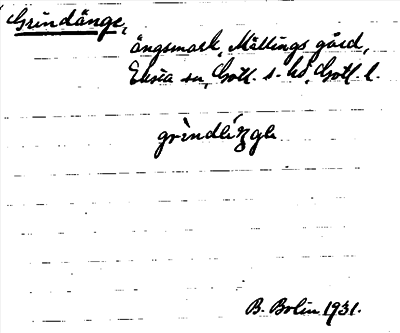 Grindänge,
ängsmark, Mällings gård,
Eksta sn, Gotl. s. hd, Gotl. l.
B. Bolin 1931.